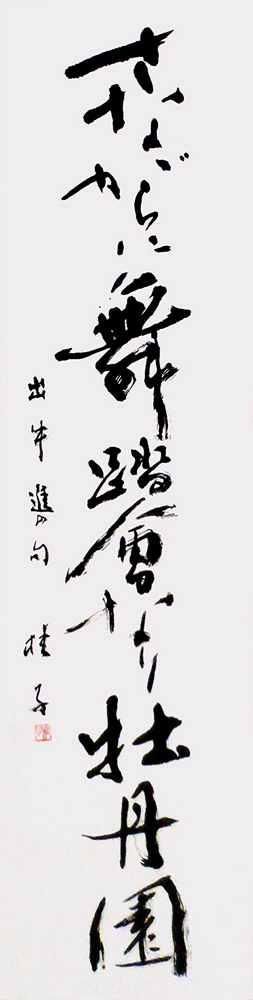 さながらに舞踏會なり牡丹園
出牛進の句 桂子